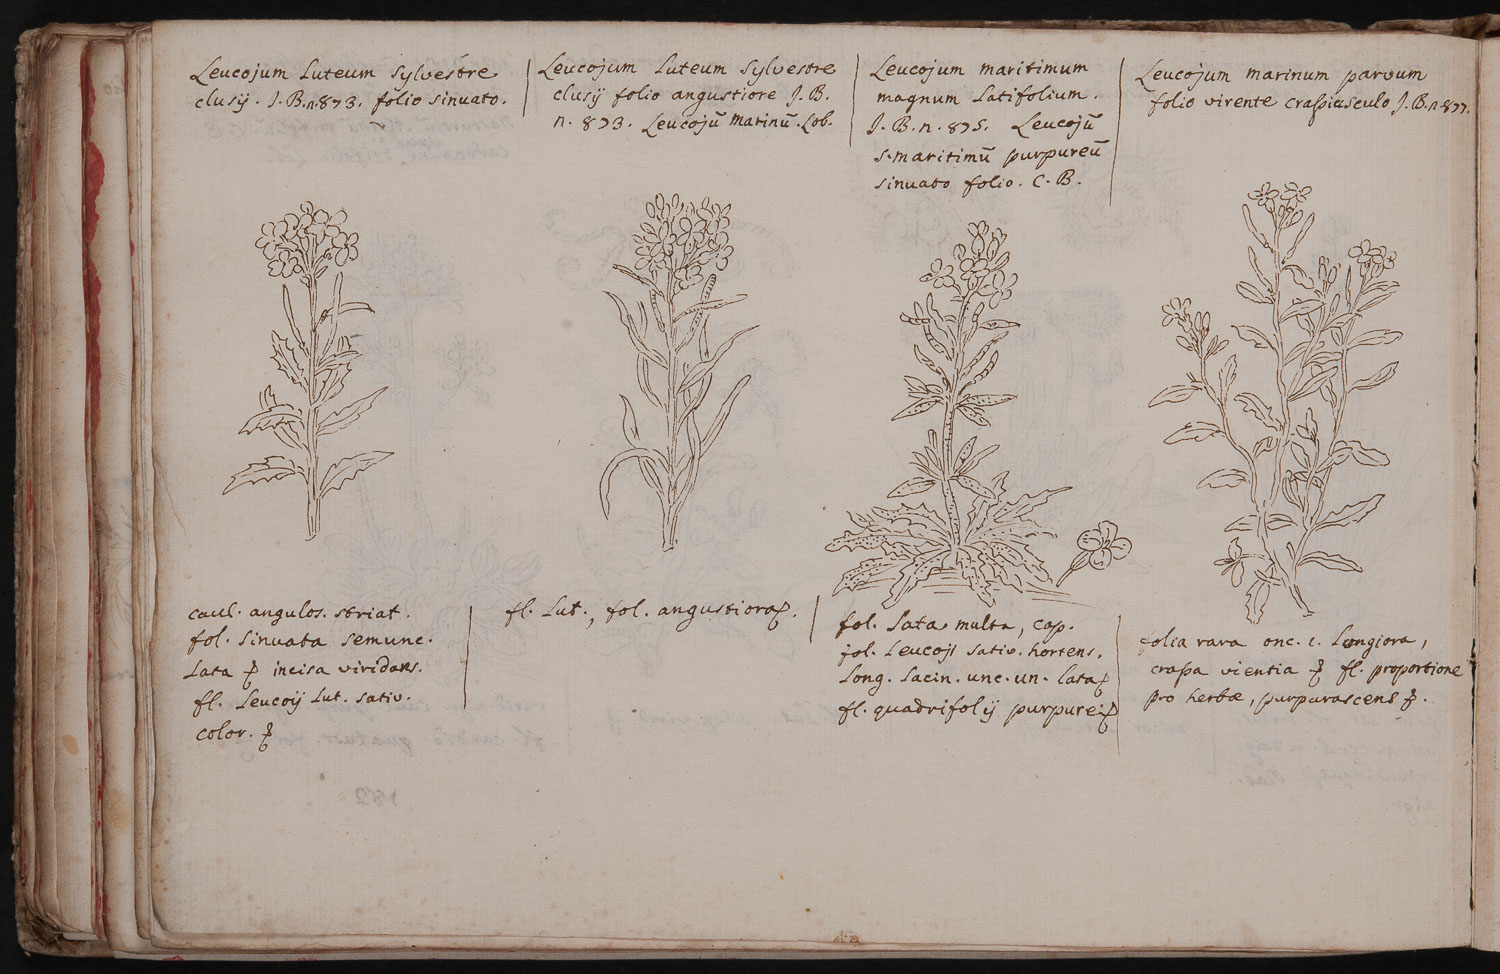 Leucojum Luteum sylvestre
clusij. J.B.n.873. folio sinuato.
Leucojum Luteum sylvestre
clusij folio angustiore J.B.
n. 873. Leucojũ Marinũ. Lob.
Leucojum maritimum
magnum Latifolium.
J.B.n.875. Leucojũ
s. maritimũ purpureũ
sinuato folio. C.B.
Leucojum marinum parvum
folio virente craſsiusculo J.B.n.877.
caul. angulos. striat.
fol. sinuata semunc.
Lata & incisa viridans.
fl. Leucoij Lut. sativ.
color.
fl. Lut., fol. angustiora
fol. Lata multa, cap.
fol. Leucoji sativ. hortens.
Long. Lacin. unc. un. lata
fl. quadrifolij purpurei
folia rara onc. 1. Longiora,
craſsa vientia fl. proportione
pro herbæ, purpurascens
182